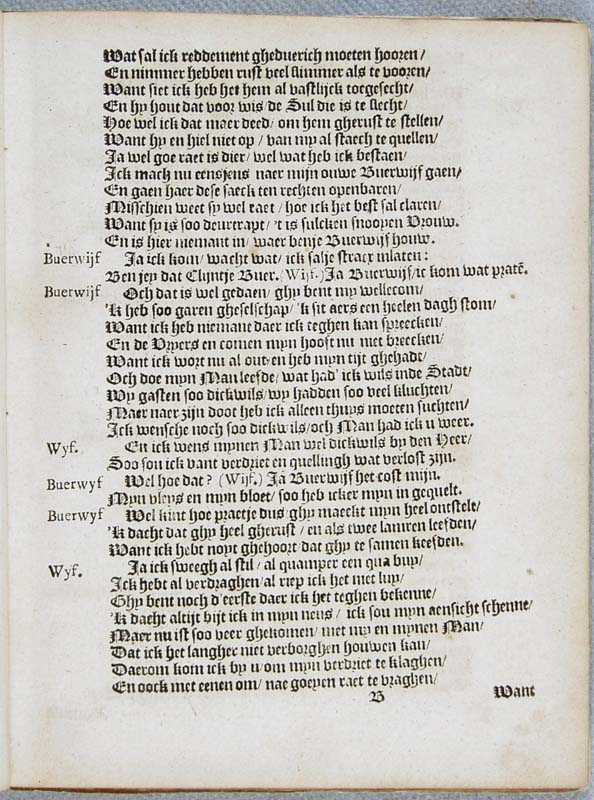 Wat sal ick reddement gheduerich moeten hooren/
En nimmer hebben rust veel slimmer als te vooren/
Want siet ick heb het hem al vastlijck toegesecht/
En hy hout dat voor wis/ de Sul die is te slecht/
Hoe wel ick dat maer deed/ om hem gherust te stellen/
Want hy en hiel niet op/ van my al staech te quellen/
Ja wel goe raet is dier/ wel wat heb ick bestaen/
Ick mach nu eensjens naer mijn ouwe Buerwijf gaen/
En gaen haer dese saeck ten rechten openbaren/
Misschien weet sy wel raet/ hoe ick het best sal claren/
Want sy is soo deurtrapt/ 't is sulcken snoopen Vrouw.
En is hier niemant in/ waer benje Buerwijf houw.
Buerwijf Ja ick kom/ wacht wat/ ick salje stracx inlaten:
Ben jey dat Clijntje Buer. (Wijf.) Ja Buerwijf/ ic kom wat pratē.
Buerwijf Och dat is wel gedaen/ ghy bent my wellecom/
'k heb soo garen gheselschap/ 'k sit aers een heelen dagh stom/
Want ick heb niemant daer ick teghen kan spreecken/
En de Vryers en comen mijn hooft nu niet breecken/
Want ick wort nu al out/ en heb mijn tijt ghehadt/
Och doe myn Man leefde/ wat had' ick wils inde Stadt/
Wy gasten soo dickwils/ wy hadden soo veel kluchten/
Maer naer zijn doot heb ick alleen thuys moeten suchten/
Ick wensche noch soo dickwils/ och Man had ick u weer.
Wyf. En ick wens mynen Man wel dickwils by den Heer/
Soo sou ick vant verdriet en quellingh wat verlost zijn.
Buerwyf Wel hoe dat? (Wijf.) Ja Buerwijf het cost mijn.
Myn vleys en myn bloet/ soo heb icker myn in gequelt.
Buerwyf Wel kint hoe praetje dus/ ghy maeckt myn heel ontstelt/
'k dacht dat ghy heel gherust/ en als twee lamren leefden/
Want ick hebt noyt ghehoort dat ghy te samen keefden.
Wyf. Ja ick sweegh al stil/ al quamper een qua buy/
Ick hebt al verdraghen/ al riep ick het niet luy/
Ghy bent noch d'eerste daer ick het teghen bekenne/
'k dacht altijt bijt ick in myn neus/ ick sou myn aensicht schenne/
Maer nu ist soo veer ghekomen/ met my en mynen Man/
Dat ick het langher niet verborghen houwen kan/
Daerom kom ick by u/ om myn verdriet te klaghen/
En oock met eenen om/ nae goeyen raet te vraghen/
B Want